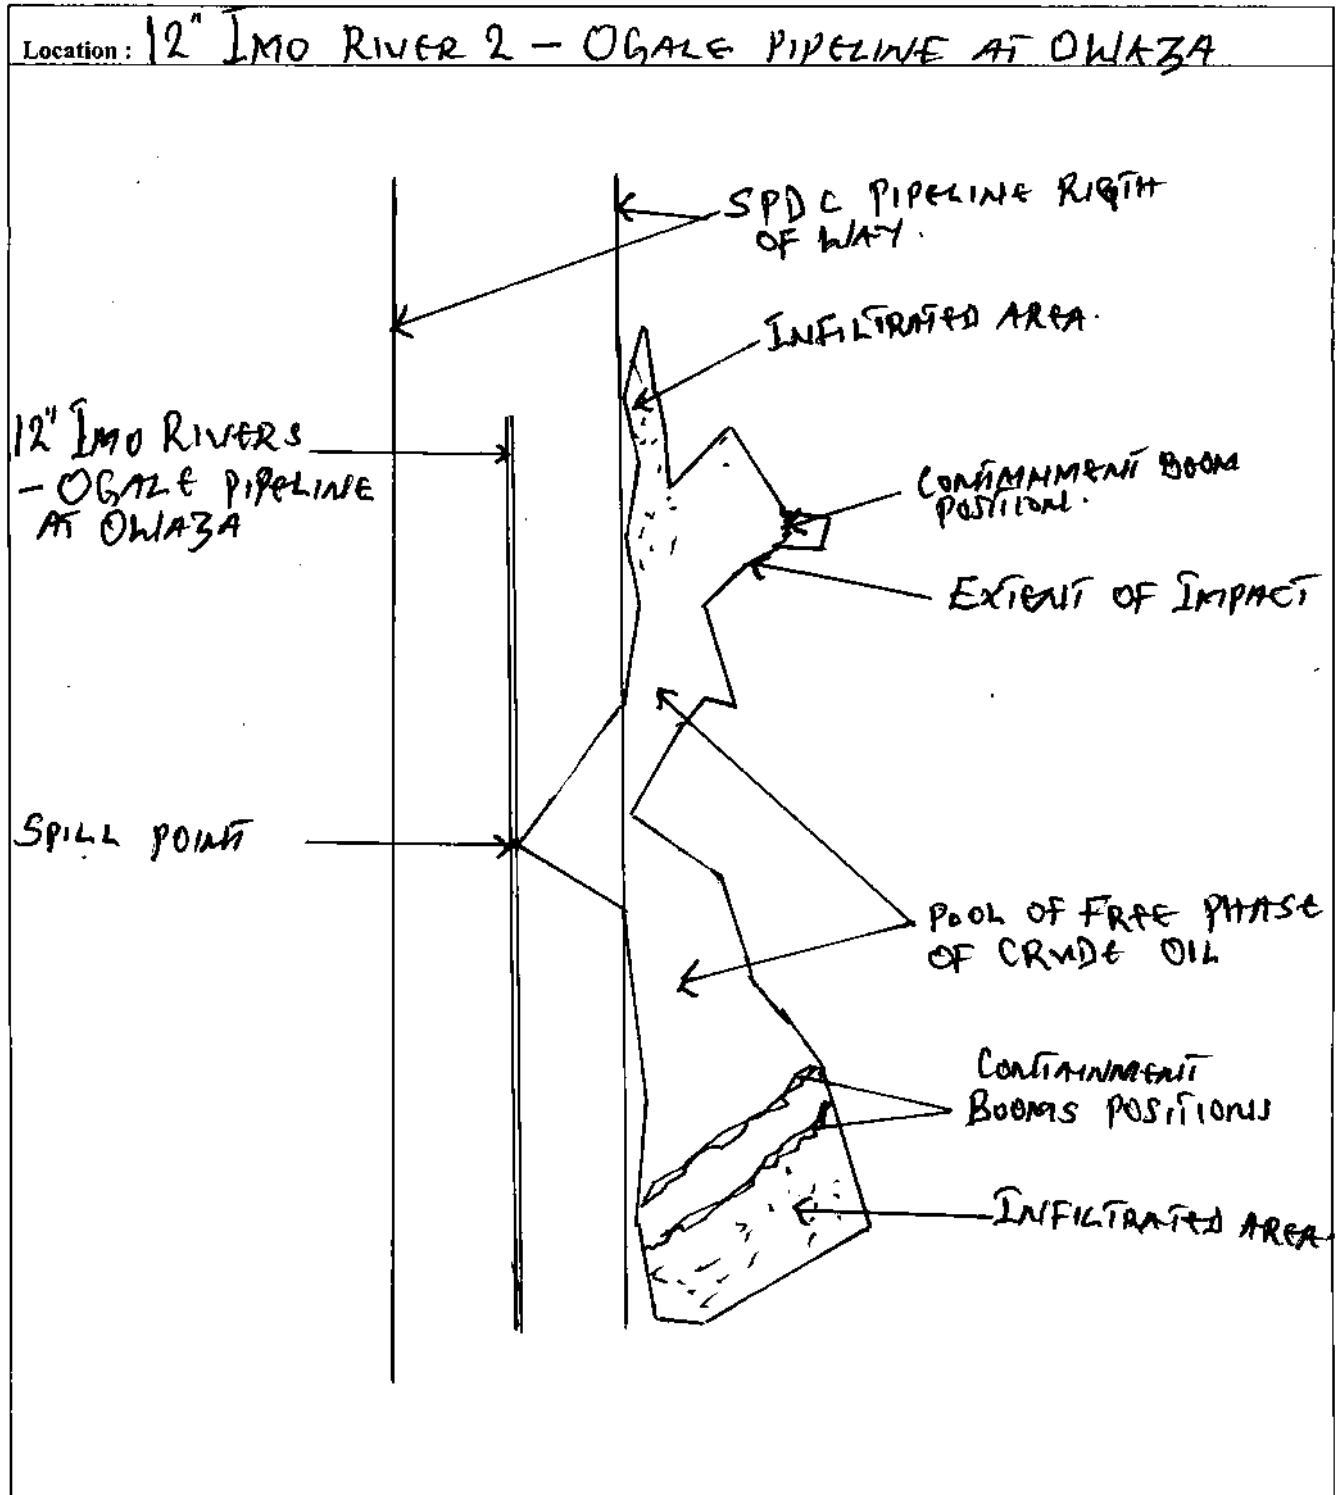 Location : 12" IMO RIVER 2 – OGALE PIPELINE AT OWAZA
SPDC PIPELINE RIGTH
OF WAY.
INFILTRATED AREA.
12" IMO RIVERS
– OGALE PIPELINE
AT OWAZA
CONTAINMENT BOOM
POSITION.
EXTENT OF IMPACT
SPILL POINT
POOL OF FREE PHASE
OF CRUDE OIL
CONTAINMENT
BOOMS POSITIONS
INFILTRATED AREA